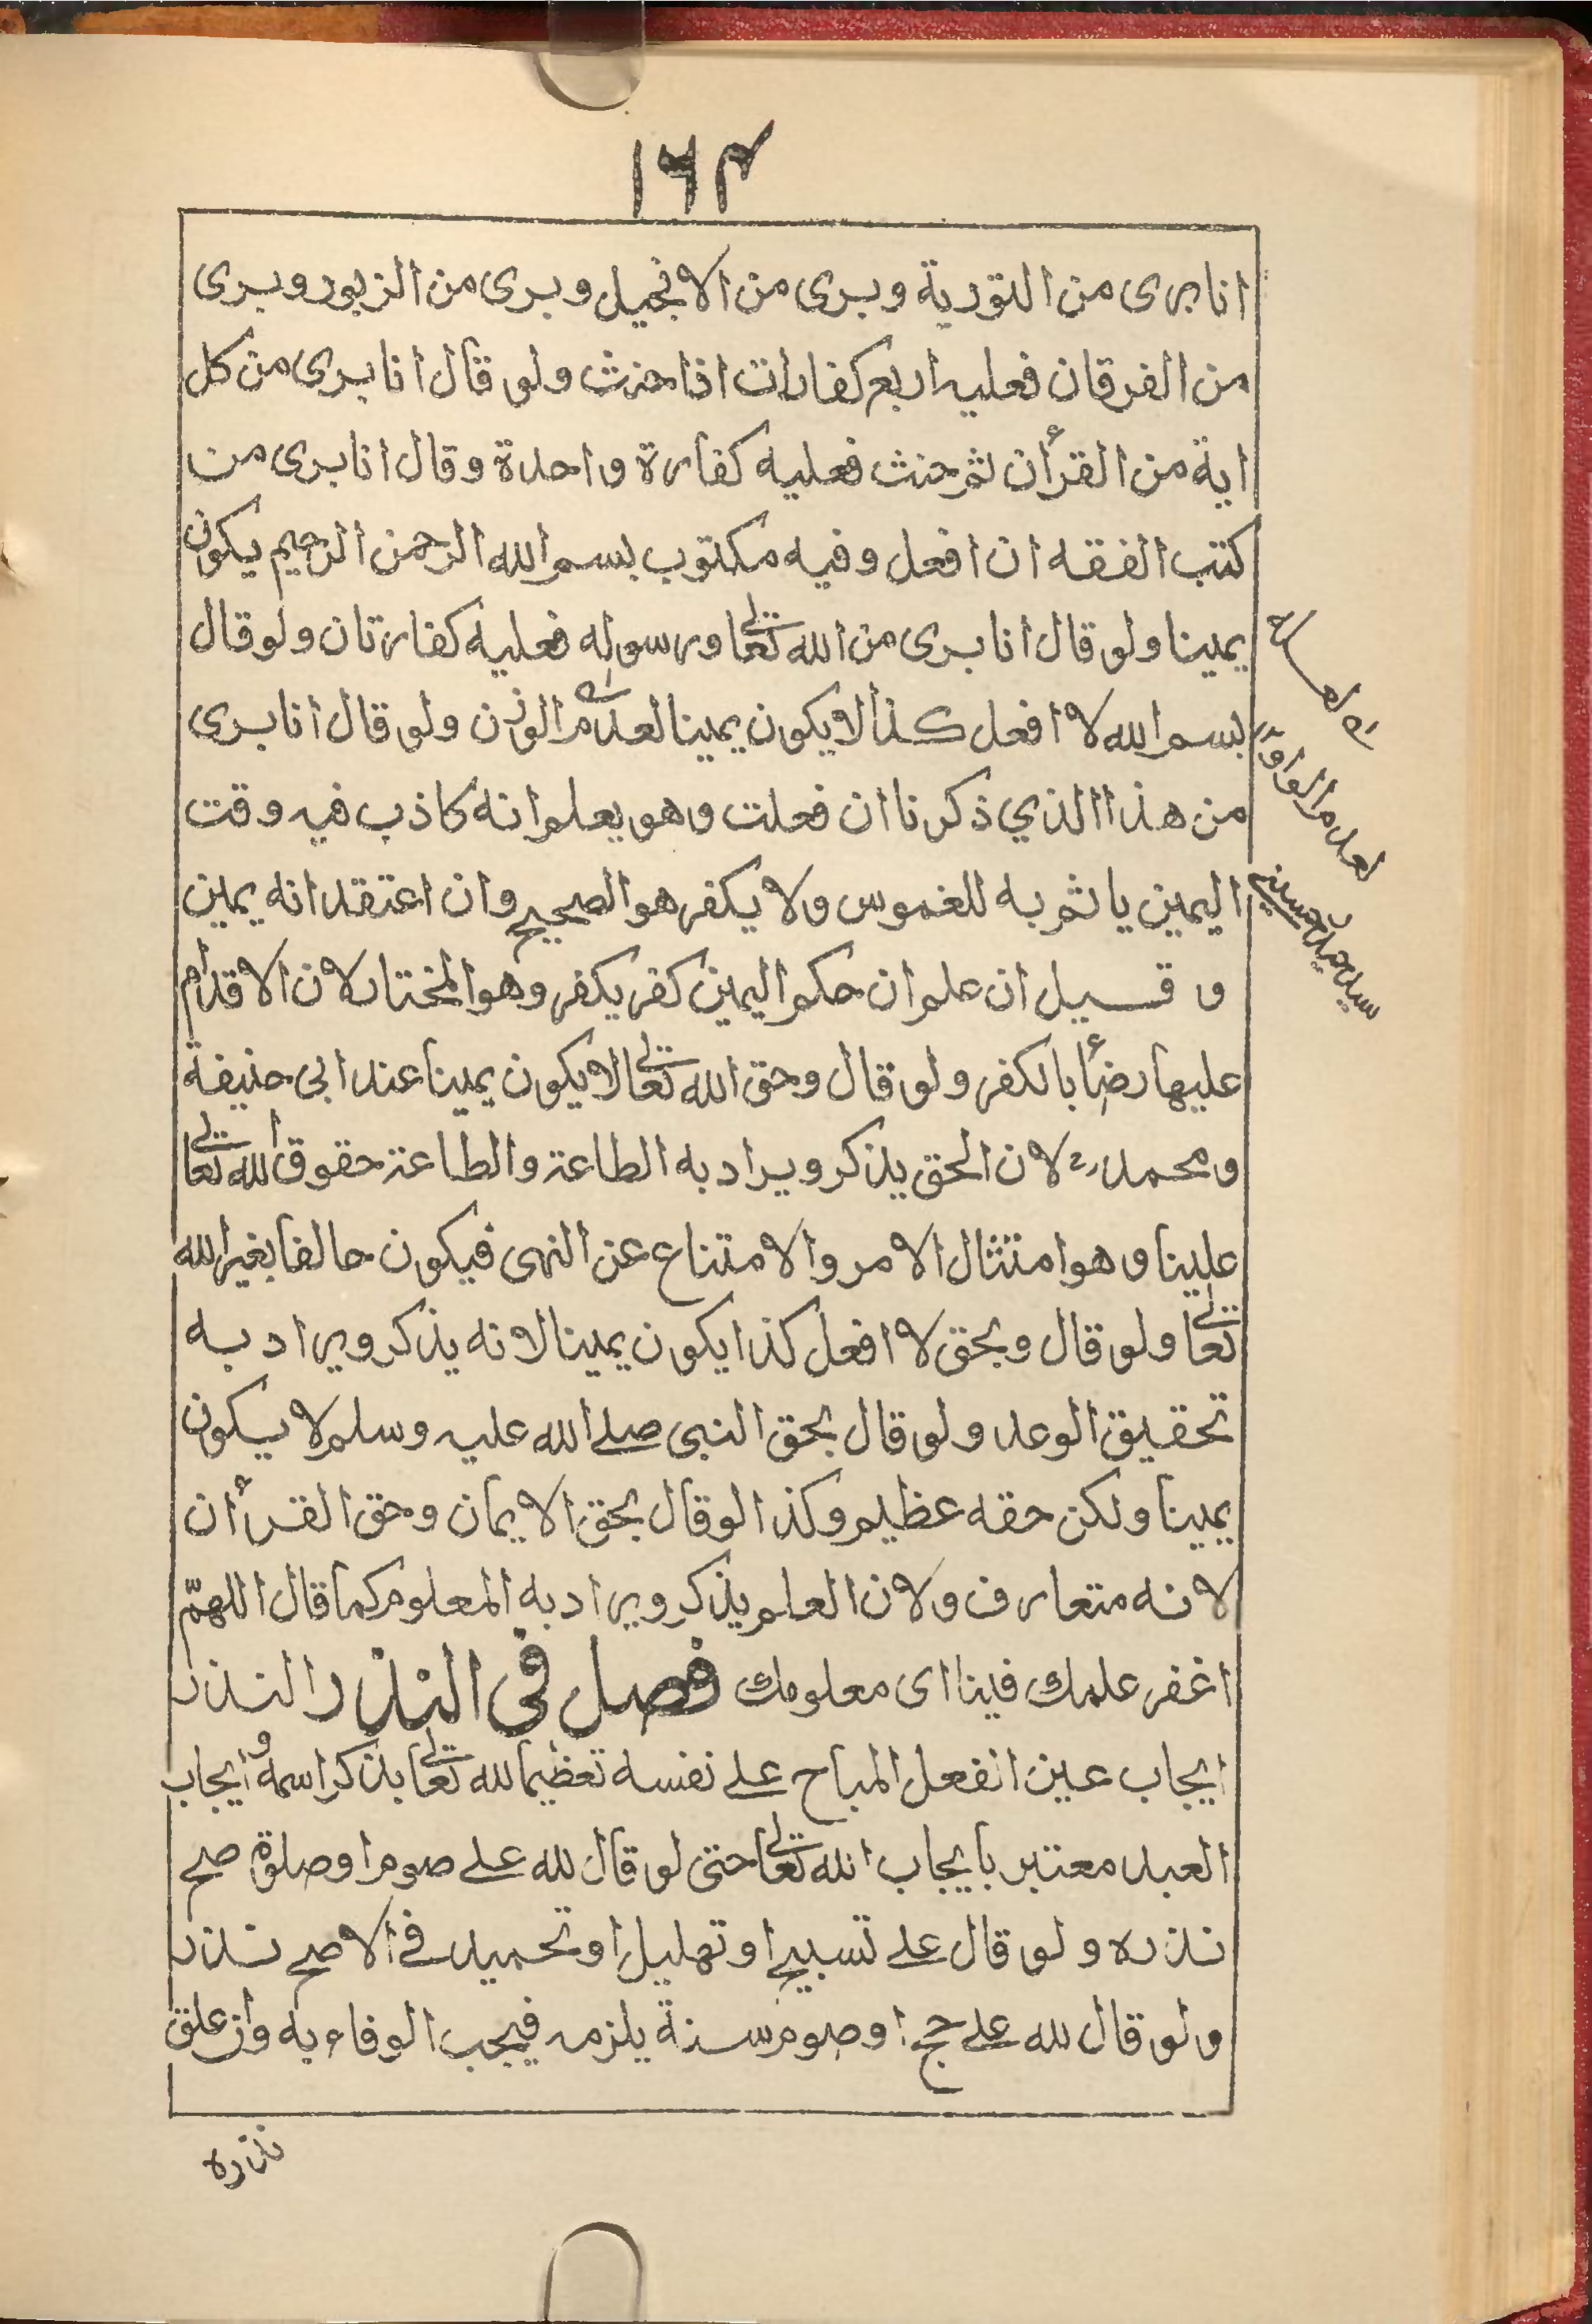 ١٦٣
انا برى من التورية وبرى من الانجيل وبرى من الزبور وبرى
من الفرقان فعليه اربع كفارات اذا حنث ولو قال انا برى من كل
اية من القرأن ثم حنث فعليه كفارة واحدة وقال انا برى من
كتب الفقه ان افعل وفيه مكتوب بسم الله الرحمن الرحيم يكون
يمينا ولو قال انا برى من الله تعالى ورسوله فعليه كفارتان ولو قال
بسم الله لا افعل كذا لا يكون يمينا لعدم الوزن ولو قال انا برى
من هذا الذي ذكرنا ان فعلت وهو يعلم انه كاذب فيه وقت
اليمين ياثم به للغموس ولا يكفر هو الصحيح وان اعتقد انه يمين
و قيل ان علم ان حكم اليمين كفر يكفر وهو المختار لان الاقدام
عليها رضأ بالكفر ولو قال وحق الله تعالى لا يكون يمينا عند ابى حنيفة
ومحمد رح لان الحق يذكر ويراد به الطاعة والطاعة حقوق الله تعالى
علينا وهو امتثال الامر والامتناع عن النهى فيكون حالفا بغير الله
تعالى ولو قال وبحق لا افعل كذا يكون يمينا لانه يذكر ويراد به
تحقيق الوعد ولو قال بحق النبى صلے الله عليه وسلم لا يكون
يمينا ولكن حقه عظيم وكذا لو قال بحق الايمان وحق القرأن
لانه متعارف ولان العلم يذكر ويراد به المعلوم كما قال اللهمّ
اغفر علمك فينا اى معلومك فصل فى النذر النذر
ايجاب عين الفعل المباح علے نفسه تعظيما لله تعالى بذكر اسمه وايجاب
العبد معتبر بايجاب الله تعالى حتى لو قال لله علے صوم او صلوة صح
نذره ولو قال علے تسبيح او تهليل او تحميد فے الاصح نذر
ولو قال لله علے حج او صوم سنة يلزمه فيجب الوفاء به وان علق
نذره